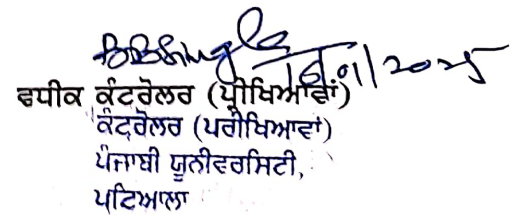 BBSingla
16/01/2025
ਵਧੀਕ ਕੰਟਰੋਲਰ (ਪ੍ਰੀਖਿਆਵਾਂ)
ਕੰਟਰੋਲਰ (ਪਰੀਖਿਆਵਾਂ)
ਪੰਜਾਬੀ ਯੂਨੀਵਰਸਿਟੀ,
ਪਟਿਆਲਾ